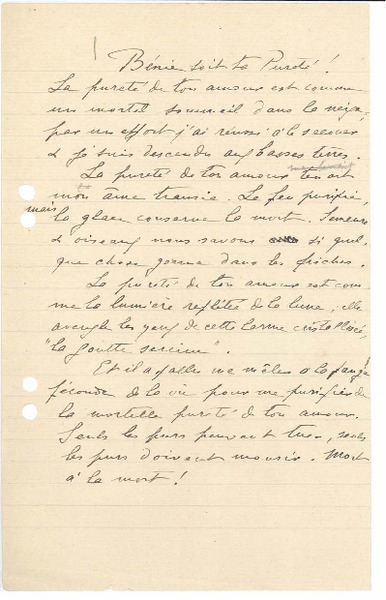 Bénie soit ta Pureté !
La pureté de ton amour est comme
un mortel sommeil dans la neige,
par un effort j'ai réussi à le secouer
& je suis descendu aux basses terres.
La pureté de ton amour tenait
mon âme transie. Le feu purifie,
mais
la glace conserve la mort. Semeurs
& oiseaux nous savons si quel-
que chose germe dans les friches.
La pureté de ton amour est com-
me la lumière reflétée de la lune, elle
aveugle les yeux de cette larme cristallisée,
"la goutte sereine".
Et il a fallu me mêler à la fange
féconde de la vie pour me purifier de
la mortelle pureté de ton amour.
Seuls les purs peuvent tuer, seuls
les purs doivent mourir. Mort
à la mort !